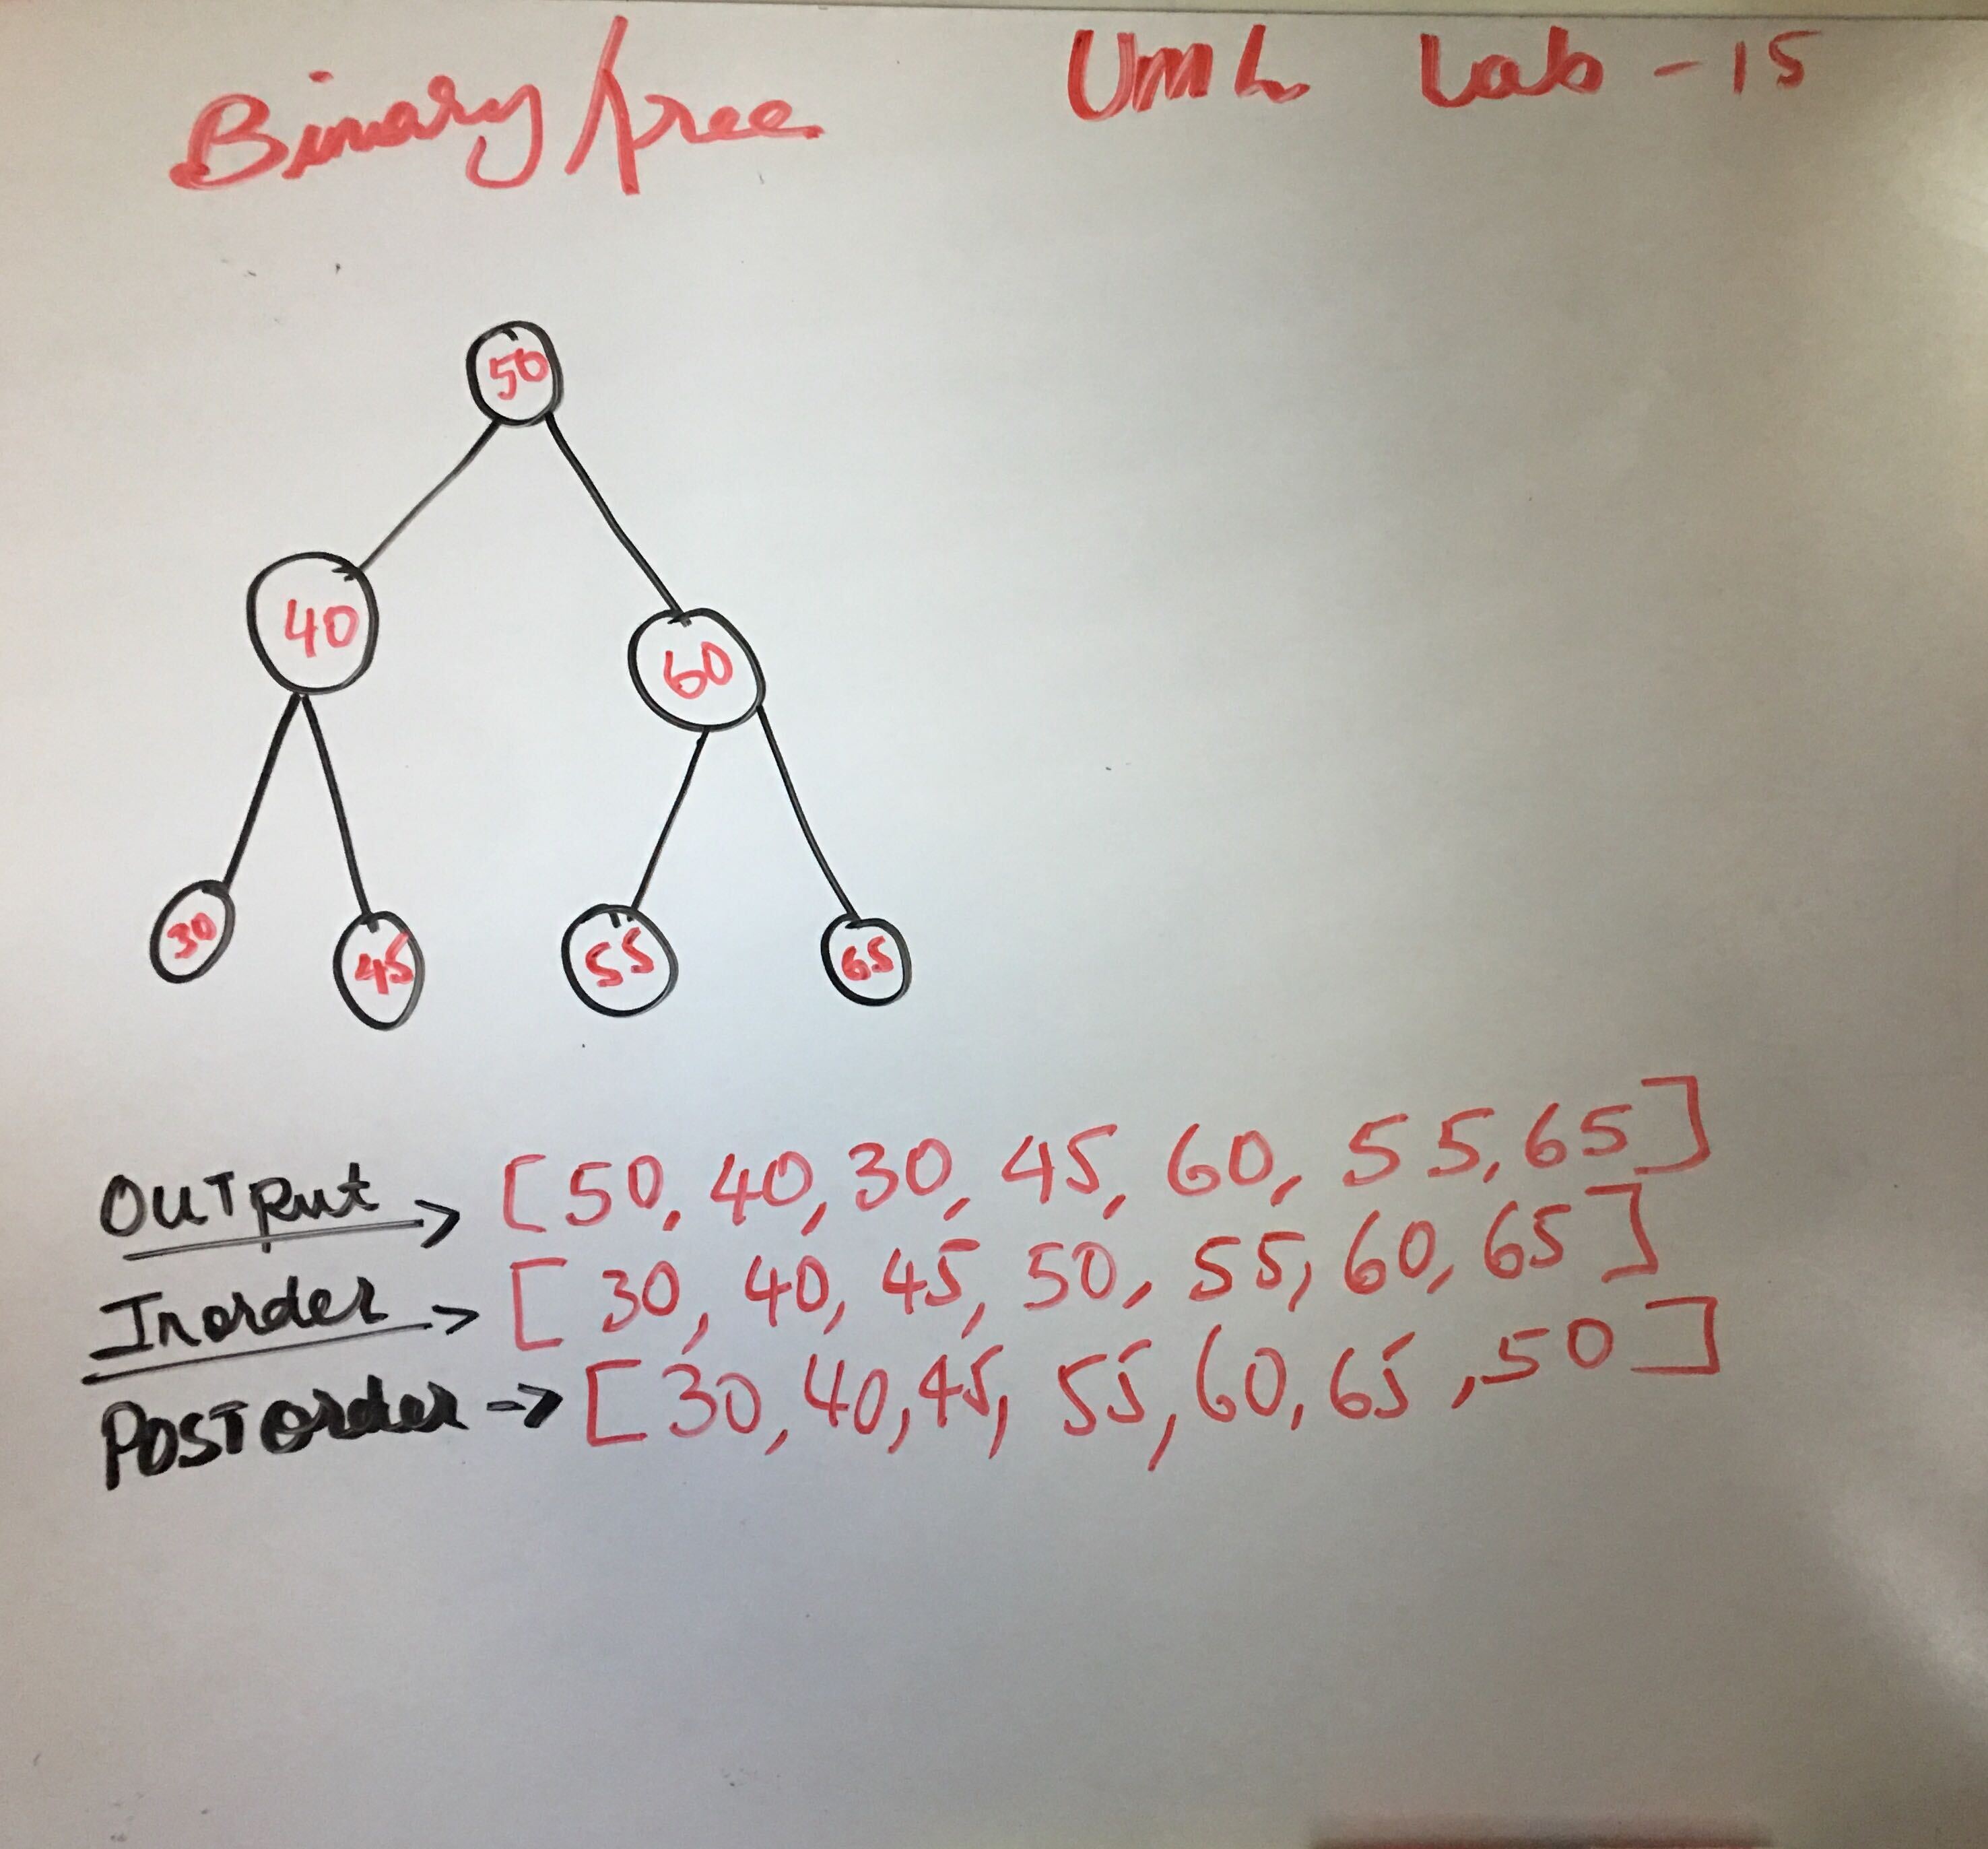 Binary tree UML Lab - 15
50
40
60
30 45 55 65
OUTPut -> [50, 40, 30, 45, 60, 55, 65]
Inorder -> [30, 40, 45, 50, 55, 60, 65]
POSTOrder -> [30, 40, 45, 55, 60, 65, 50]